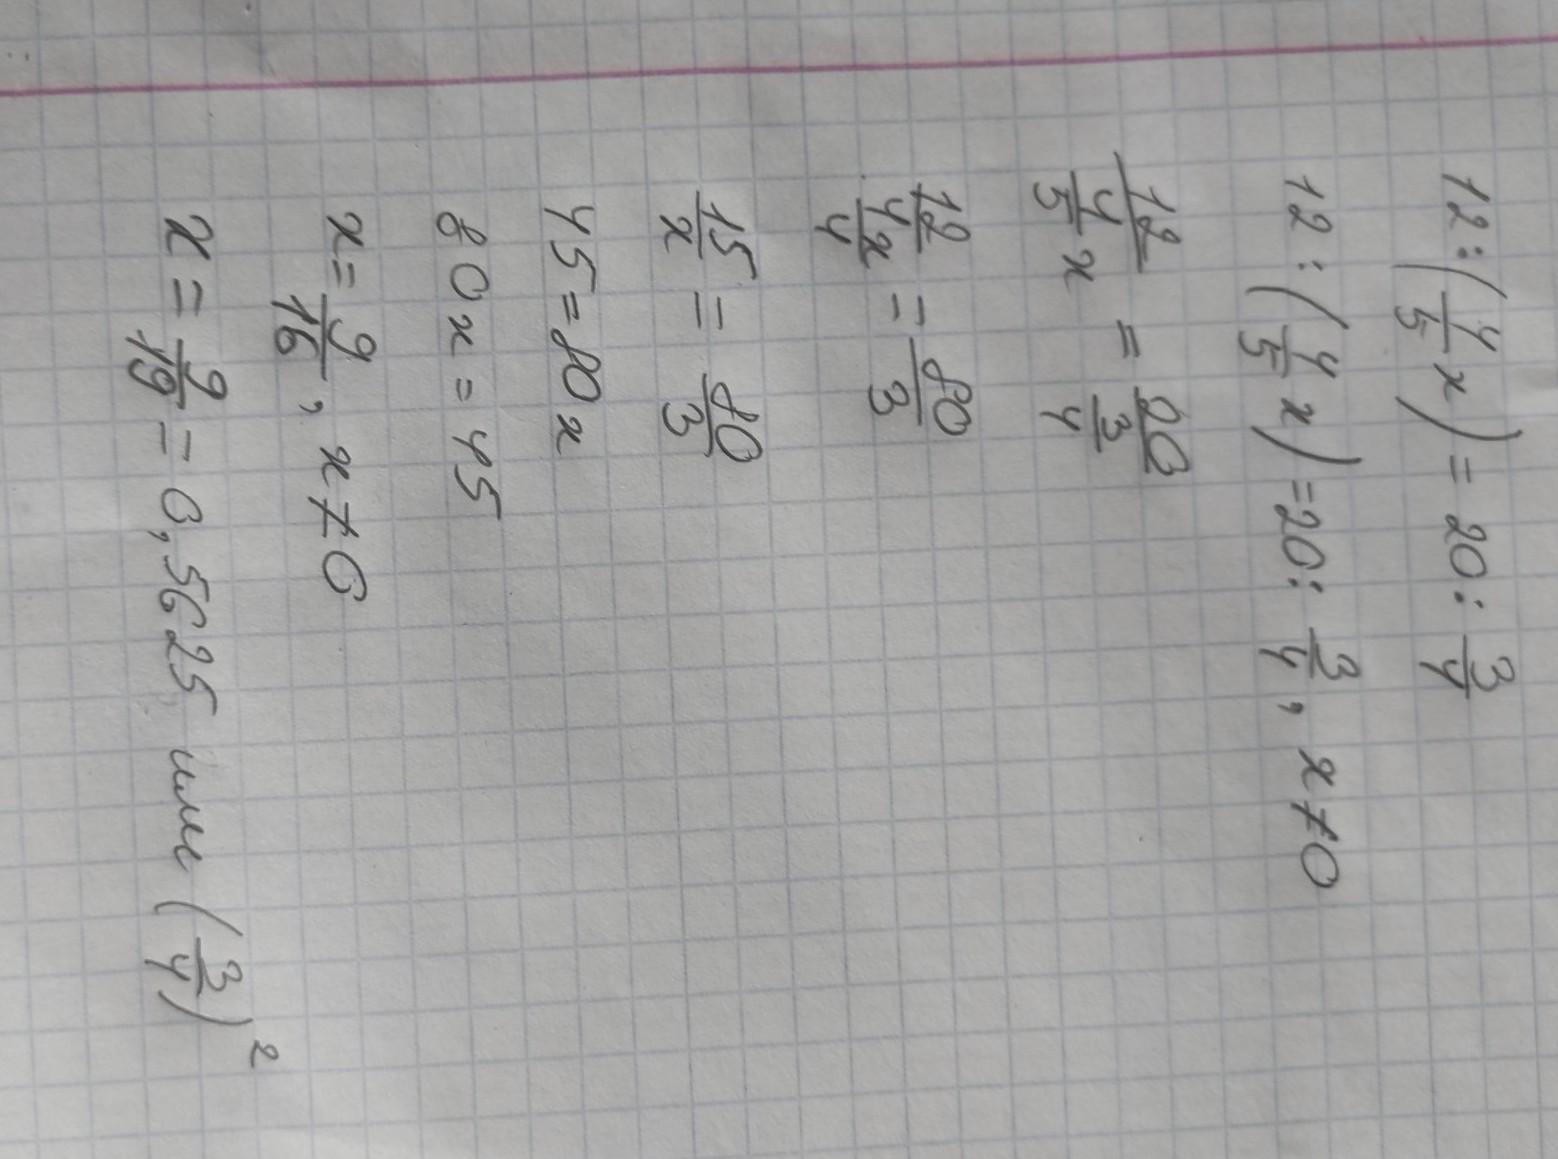 12 : (4/5 x) = 20 : 3/4
12 : (4/5 x) = 20 : 3/4, x ≠ 0
12/(4/5 x) = 20/(3/4)
12/(4x/4) = 80/3
15/x = 80/3
45 = 80x
80x = 45
x = 9/16, x ≠ 0
x = 9/19 = 0,5625 или (3/4)²